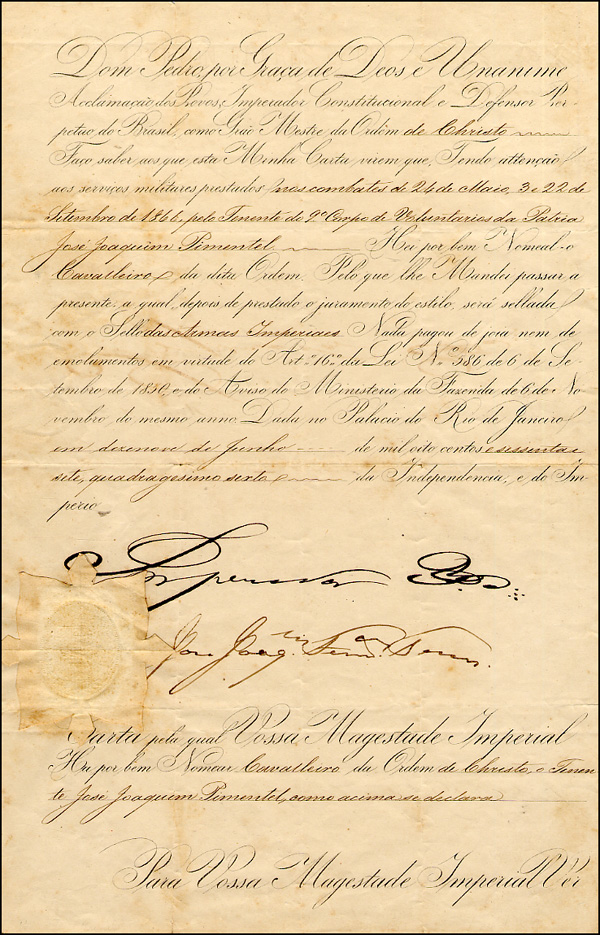 Dom Pedro, por Graça de Deos e Unanime
Acclamação dos Povos, Imperador Constitucional e Defensor Per-
petuo do Brasil, como Grão Mestre da Ordem de Christo
Faço saber aos que esta Minha Carta virem que, Tendo attenção
aos serviços militares prestados nos combates de 24 de Maio, 3 e 22 de
Setembro de 1866, pelo Tenente do 2º Corpo de Voluntarios da Patria
José Joaquim Pimentel Hei por bem Nomeal-o
Cavalleiro da dita Ordem. Pelo que lhe Mandei passar a
presente, a qual, depois de prestado o juramento do estilo, será sellada
com o Sello das Armas Imperiaes. Nada pagou de joia nem de
emolumentos em virtude do Artº 16º da Lei Nº 586 de 6 de Se-
tembro de 1850, e do Aviso do Ministerio da Fazenda de 6 de No-
vembro do mesmo anno. Dada no Palacio do Rio de Janeiro
em dezenove de Junho de mil oito centos e sessenta e
sete, quadragesimo sexto da Independencia, e do Im-
perio
Imperador
José Joaq.
Carta pela qual Vossa Magestade Imperial
Ha por bem Nomear Cavalleiro da Ordem de Christo, o Tenen-
te José Joaquim Pimentel, como acima se declara
Para Vossa Magestade Imperial Ver